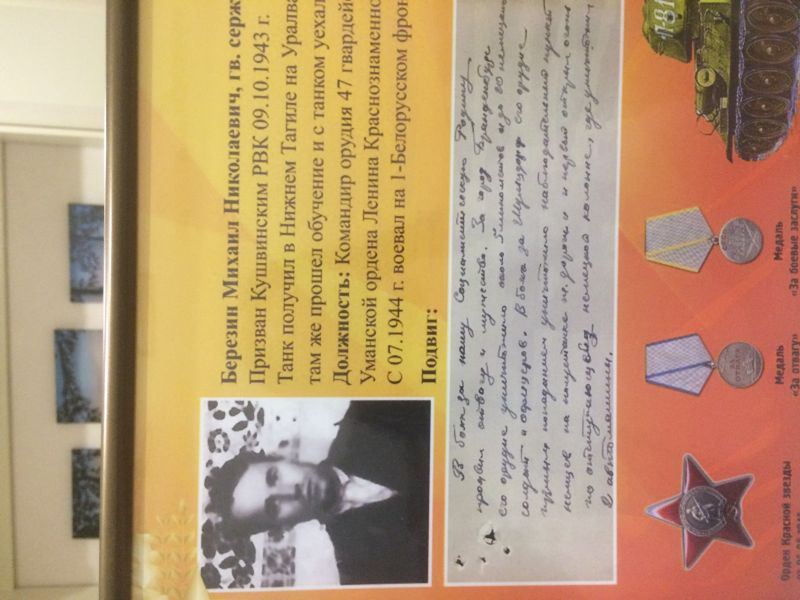 Березин Михаил Николаевич, гв. серж
Призван Кушвинским РВК 09.10.1943 г.
Танк получил в Нижнем Тагиле на Уралва
там же прошел обучение и с танком уехал
Должность: Командир орудия 47 гвардейс
Уманской ордена Ленина Краснознаменно
С 07.1944 г. воевал на 1-Белорусском фрон
Подвиг:
В боях за нашу Социалистическую Родину
проявил отвагу и мужество. За город Бранденбург
его орудие уничтожило около 5 минометов и до 80 немецких
солдат и офицеров. В боях за его орудие
прямым попаданием уничтожило наблюдательный пункт
немцев на и первый открыл огонь
по отступающей немецкой колонне, где уничтожил
2 автомашины.
Орден Красной звезды
Медаль
«За отвагу»
Медаль
«За боевые заслуги»
ЗА ОТВАГУ
181